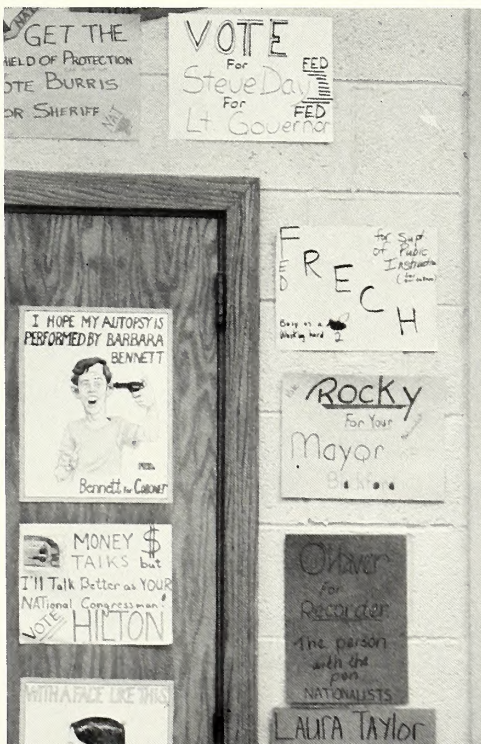 NAT
GET THE
HIELD OF PROTECTION
OTE BURRIS
OR SHERIFF
NAT
VOTE
For
Steve Day
FED
For
FED
Lt Governor
FRECH
FED
for Supt.
of Public
Instruction
Busy as a
Working hard 2
I HOPE MY AUTOPSY IS
PERFORMED BY BARBARA
BENNETT
Bennett for CORONER
ROCKY
For Your
Mayor
MONEY $
TALKS but
I'll Talk Better as YOUR
NATional Congressman!
VOTE HILTON
OHaver
For
Recorder
The person
with the
pen
NATIONALISTS
WITH A FACE LIKE THIS,
LAURA TAYLOR